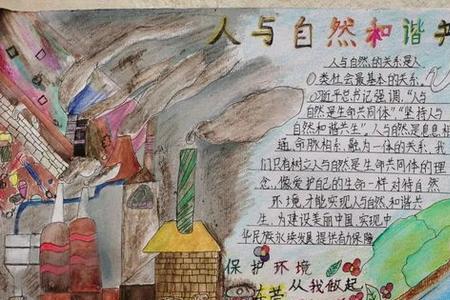 人与自然和谐共
人与自然的关系是人
类社会最基本的关系
习近平总书记强调,"人与
自然是生命共同体""坚持人与
自然和谐共生"人与自然是息息相
通、命脉相系、融为一体的关系,我
们只有树立人与自然是生命共同体的理
念,像爱护自己的生命一样对待自然
环境,才能实现人与自然和谐共
生,为建设美丽中国,实现中
华民族永续发展提供有力保障
保护环境
从我做起